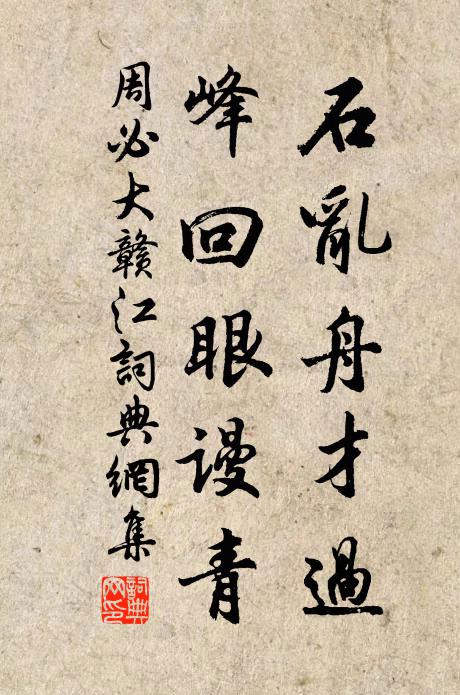 石亂舟才過
峰回眼謾青
周必大贛江詞典網集
詞典
网印